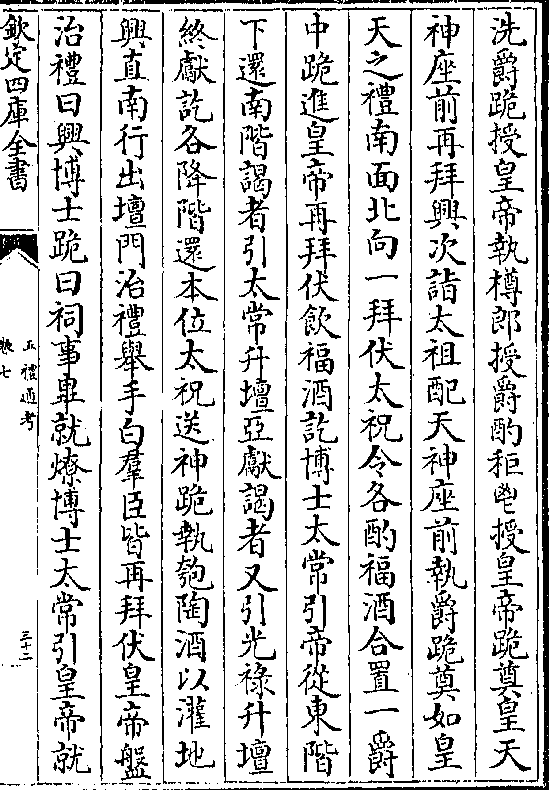 洗爵跪授皇帝執樽郎授爵酌秬鬯授皇帝跪奠皇天
神座前再拜興次詣太祖配天神座前執爵跪奠如皇
天之禮南面北向一拜伏太祝令各酌福酒合置一爵
中跪進皇帝再拜伏飲福酒訖博士太常引帝從東階
下還南階謁者引太常升壇亞獻謁者又引光祿升壇
終獻訖各降階還本位太祝送神跪執匏陶酒以灌地
興直南行出壇門治禮舉手白羣臣皆再拜伏皇帝盤
治禮曰興博士跪曰祠事畢就燎博士太常引皇帝就
欽定四庫全書
五禮通考
卷七
三十二